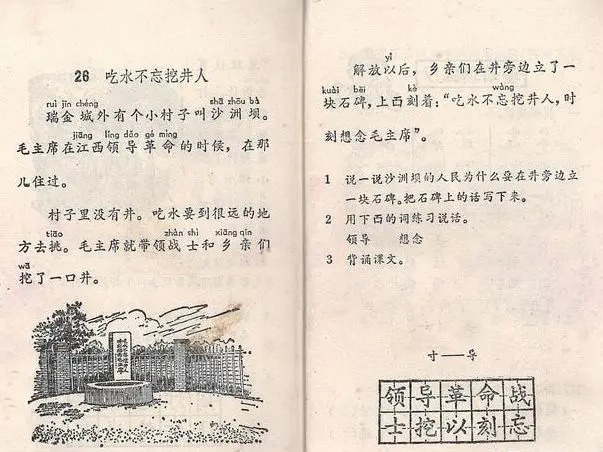 26 吃水不忘挖井人
ruì jīn chéng shā zhōu bà
瑞金城外有个小村子叫沙洲坝。
jiāng lǐng dǎo gé mìng
毛主席在江西领导革命的时候，在那
儿住过。
村子里没有井。吃水要到很远的地
tiāo zhàn shì xiāng qīn
方去挑。毛主席就带领战士和乡亲们
wā
挖了一口井。
yǐ
解放以后，乡亲们在井旁边立了一
kuài bēi kè wàng
块石碑，上面刻着：“吃水不忘挖井人，时
刻想念毛主席”。
1 说一说沙洲坝的人民为什么要在井旁边立
一块石碑。把石碑上的话写下来。
2 用下面的词练习说话。
领导 想念
3 背诵课文。
寸——导
领导革命战
士挖以刻忘